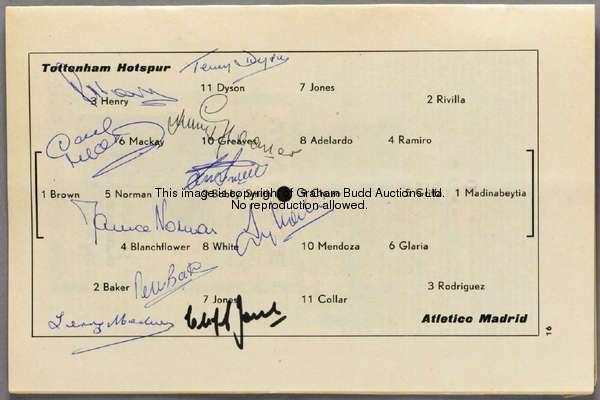 Tottenham Hotspur
Terry Dyson
11 Dyson
7 Jones
3 Henry
2 Rivilla
6 Mackay
10 Greaves
8 Adelardo
4 Ramiro
1 Brown
5 Norman
9 Bobby Smith
9 Chuzo
5 Griffa
1 Madinabeytia
This image is copyright of Graham Budd Auctions Ltd.
No reproduction allowed.
Maurice Norman
4 Blanchflower
8 White
10 Mendoza
6 Glaria
2 Baker
Peter Baker
3 Rodriguez
7 Jones
11 Collar
Terry Medwin
Cliff Jones
Atletico Madrid
16